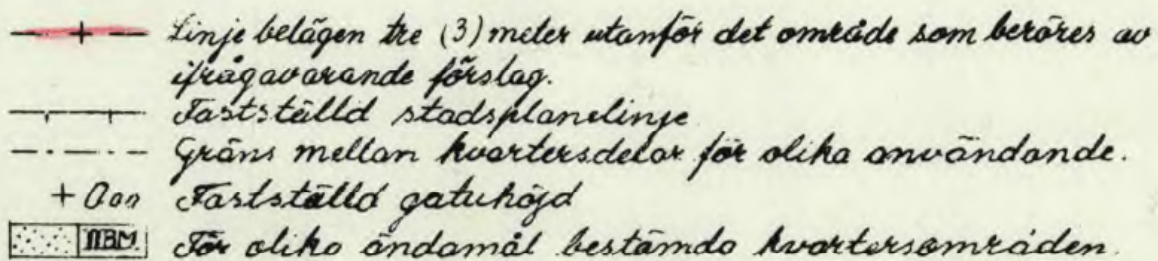 Linje belägen tre (3) meter utanför det område som beröres av
ifrågavarande förslag.
Fastställd stadsplanelinje
Gräns mellan kvartersdelar för olika användande.
+ 0.00 Fastställd gatuhöjd
ABM För olika ändamål bestämda kvartersområden.